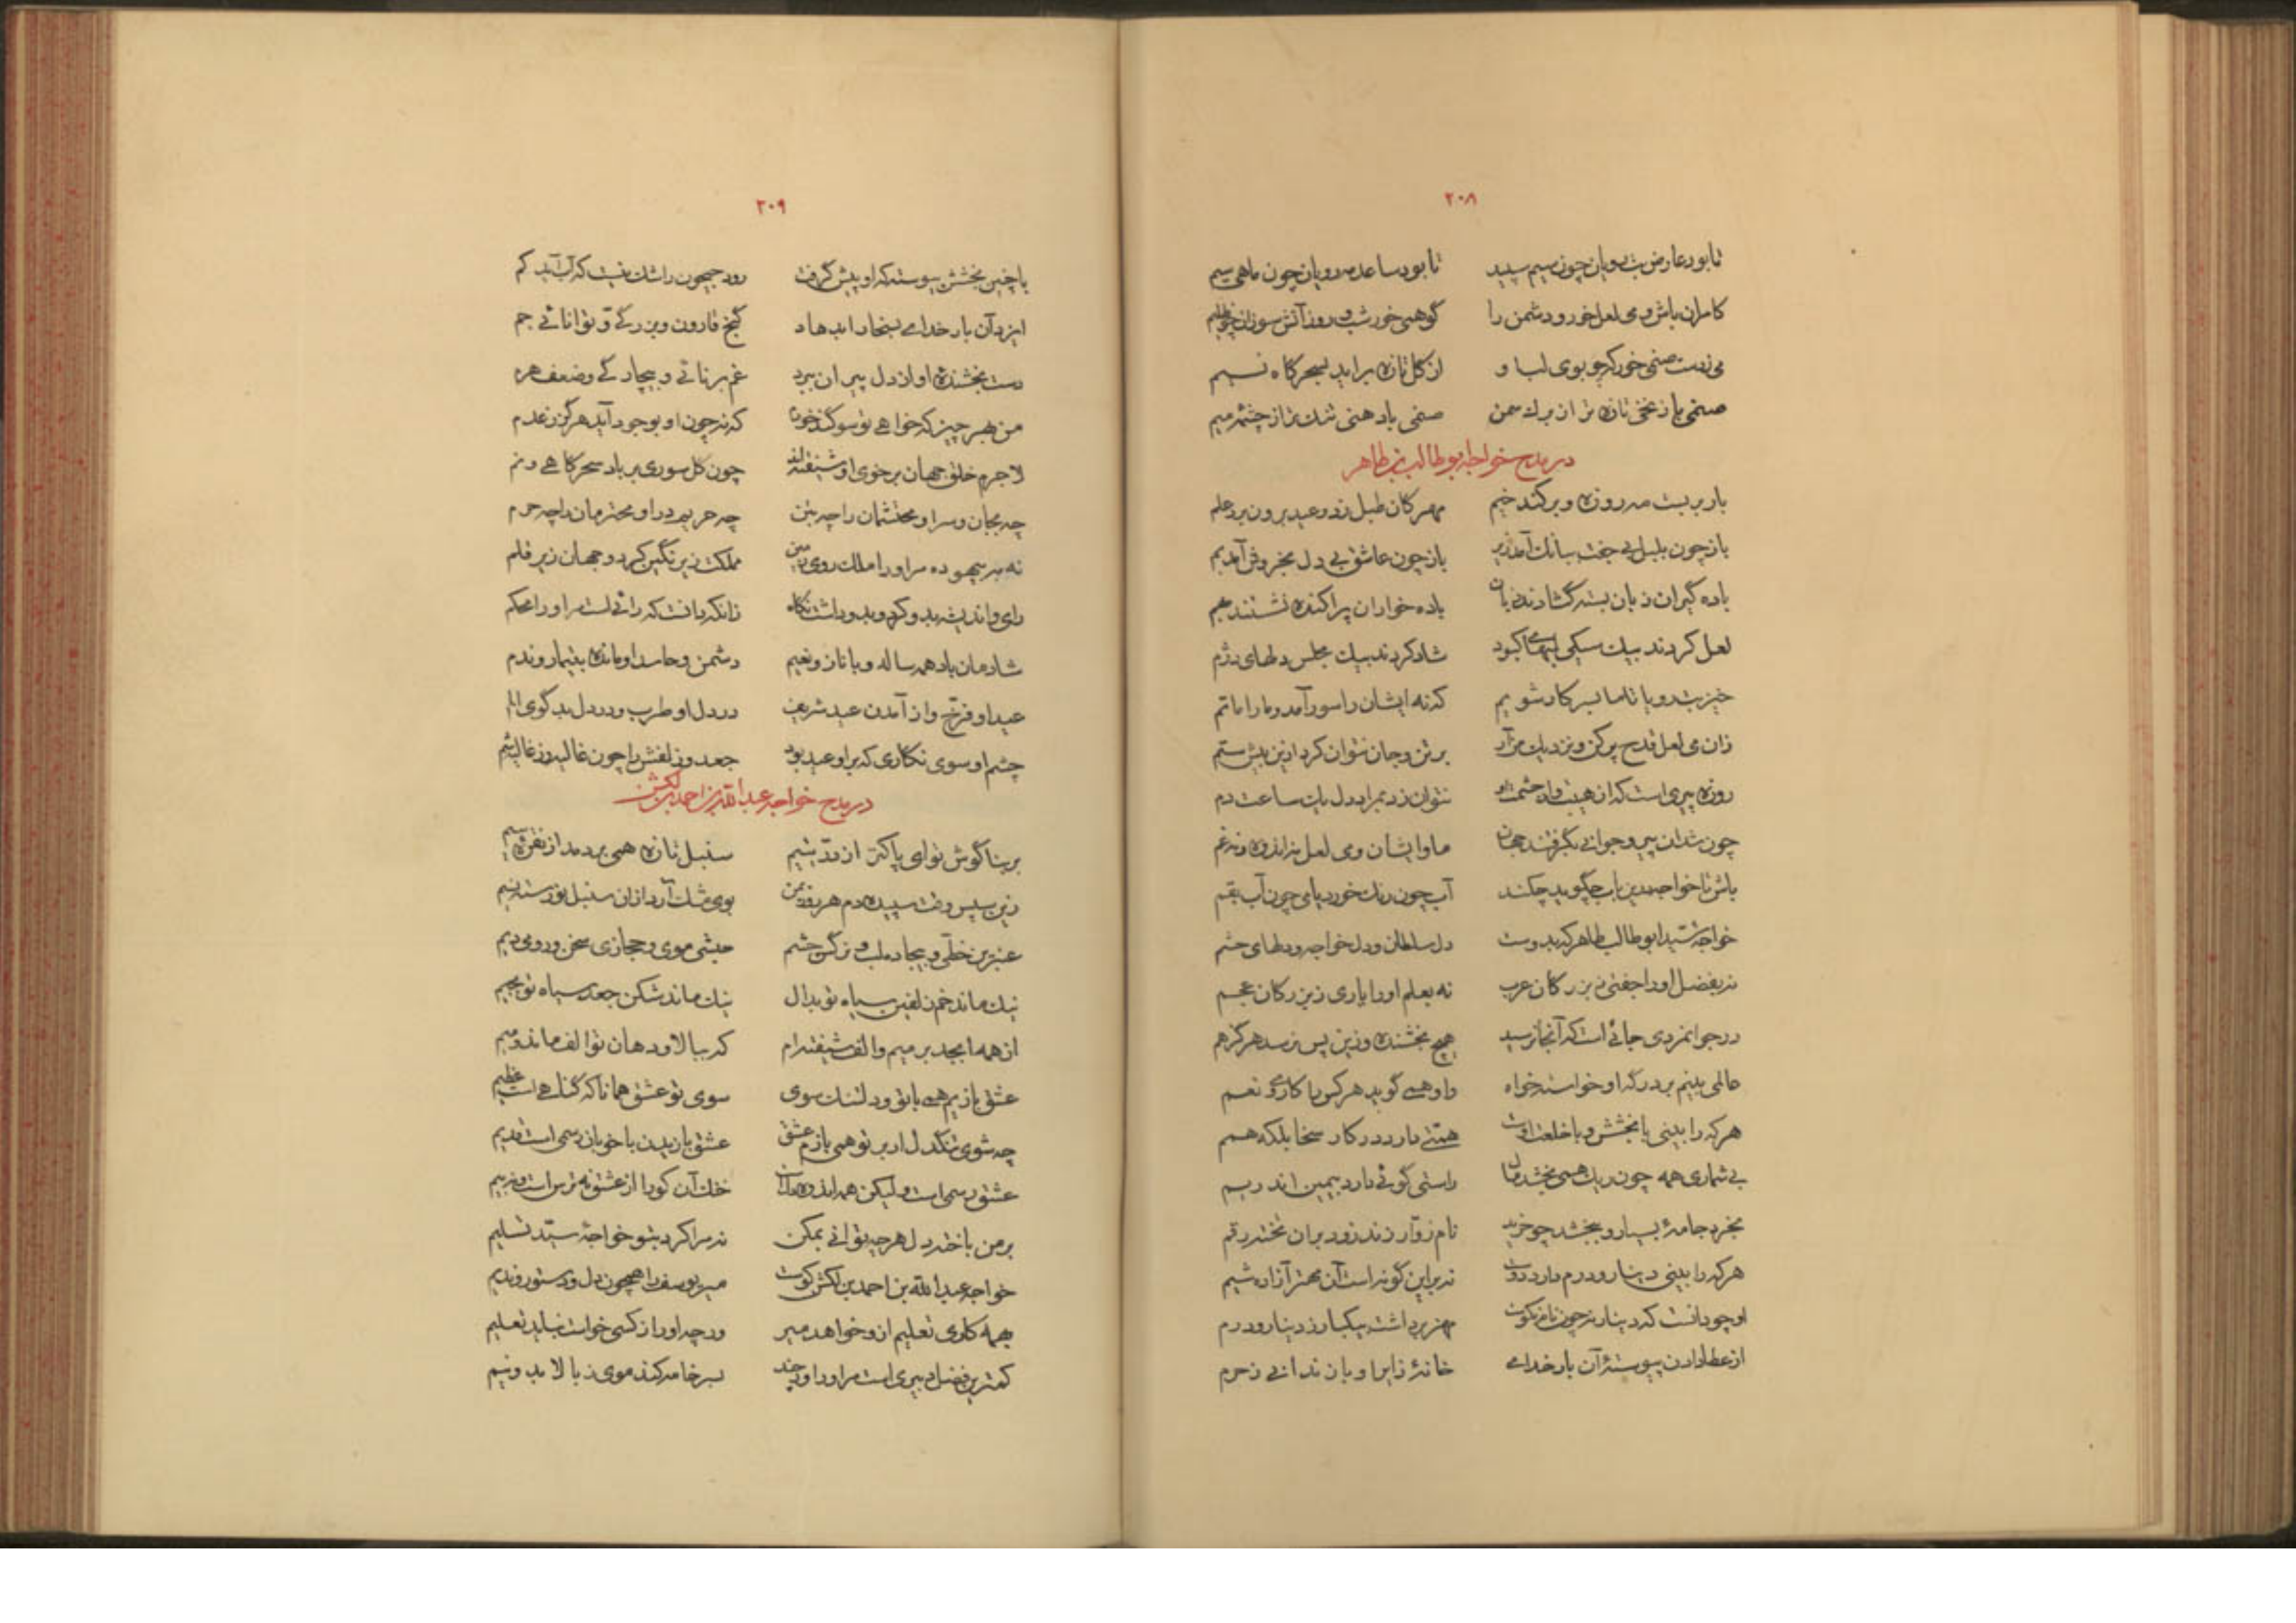 ۲۰۸
تا بود عارض بت رویان چون سیم سپید تا بود ساعد مه رویان چون ماهی سیم
کامران باش و می لعل خور و دشمن را گو همی خور شب و روز آتش سوزان چو ظلیم
می ز دست صنمی خور که چو بوی لب او از گل تازه برآید بسحرگاه نسیم
صنمی با زنخی تازه تر از برگ سمن صنمی با دهنی تنک تر از چشمه میم
در مدح خواجه ابوطالب بن طاهر
بار بر بست مه روزه و برکند خیم مهرگان طبل زد و عید برون برد علم
باز چون بلبل بی جفت ببانگ آمد زیر باز چون عاشق بی دل بخروش آمد بم
باده گیران زبان بسته گشادند زبان باده خواران پراکنده نشستند بهم
لعل کردند بیک سیکی لبهای کبود شاد کردند بیک مجلس دلهای دژم
خیز بت رویا تا ما بسر کار شویم که نه ایشان را سور آمد و ما را ماتم
زان می لعل قدح پر کن و نزدیک من آر بر تن و جان نتوان کرد ازین بیش ستم
روزه پیری است که از هیبت و از حشمت او نتوان زد بمراد دل یک ساعت دم
چون شد آن پیر و جوانی بگرفتند جهان ما و ایشان و می لعل نه اندوه و نه غم
باش تا خواجه درین باب چه گوید چکند آب چون رنگ خورد یا می چون آب بقم
خواجه سید ابوطالب طاهر که بدوست دل سلطان و دل خواجه و دلهای حشم
نه بفضل او را جفتی ز بزرگان عرب نه بعلم او را یاری ز بزرگان عجم
در جوانمردی جائی است که آنجا نرسید هیچ بخشنده و زین پس نرسد هرگز هم
عالمی بینم بر درگه او خواسته خواه واو همی گوید هر کس را کاری نعم
هر که را بینی با بخشش و با خلعت اوست همتی دارد در کار سخا بلکه همم
بی شماری همه چون ریک همی بخشد مال راستی گوئی دارد بیمین اندر یم
بخرد جامه بسیار و ببخشد چو خرید نام زوار زند زود بر آن تخته رقم
هر که را بینی دینار و درم دارد دوست نه برین گونه است آن مهتر آزاده شیم
او چو دانست که دینار نه چون نام نکوست مهر برداشت بیکبار ز دینار و درم
از عطا دادن پیوسته آن بار خدای خانه زایر او باز ندانی ز حرم
۲۰۹
با چنین بخشش پیوسته که او پیش گرفت رود جیحون را شک نیست که آب آید کم
ایزد آن بار خدای بسخا را بدهاد گنج قارون و بزرگی و توانائی جم
دست بخشنده او از دل پیران ببرد غم برنائی و بیچارگی و ضعف هرم
من بهر چیز که خواهی تو سوگند خورم که نه چون او بوجود آید هرگز ز عدم
لاجرم خلق جهان بر خوی او شیفته اند چون گل سوری بر باد سحرگاهی و نم
چه بجان و سر او محتشمان را چه بتن چه حریم در او محترمان را چه حرم
نه ببیهوده مر او را ملک روی زمین مملکت زیر نگین کرد و جهان زیر قلم
رای و اندیشه بدو کرد و بدو داشت نگاه زانکه دانست که رائی است مر او را محکم
شادمان باد همه ساله و با ناز و نعیم دشمن و حاسد او مانده بتیمار و ندم
عید او فرخ و از آمدن عید شریف در دل او طرب و در دل بدگوی الم
چشم او سوی نگاری که بر او عید بود جعد و زلفش را چون غالیه و غالیه شم
در مدح خواجه عبدالله بن احمد بن لکشن
بر بناگوش تو ای پاکتر از در یتیم سنبل تازه همی بر دمد از نقره سیم
زین سپس وقت سپیده دم هر روز بمن بوی مشک آرد از آن سنبل نو رسته نسیم
عنبرین خطی و بیجاده لب و نرگس چشم حبشی موی و حجازی سخن و رومی دیم
نیک ماند خم زلفین سیاه تو بدال نیک ماند شکن جعد سیاه تو بجیم
از همه ابجد بر میم و الف شیفته ام که ببالا و دهان تو الف ماند و میم
عشق بازیم همی با تو و دلتنک سوی سوی تو عشق همانا که گناهی است عظیم
چه شوی تنگدل ار بر تو همی بازم عشق عشق بازیدن با خوبان رسمی است قدیم
عشق رسمی است ولیکن همه اندوه دلست خنک آن کو را از عشق نه ترس است و نه بیم
بر من باخته دل هر چه توانی بمکن نه مرا کرد بتو خواجه سید تسلیم
خواجه عبدالله بن احمد بن لکشن کوست میر یوسف را همچون دل و دستور و ندیم
بهمه کاری تعلیم ازو خواهد میر ورچه او را ز کسی خواست نباید تعلیم
کمترین فضل دبیری است مر او را و هر چند بسر خامه کند موی ز بالا بدو نیم